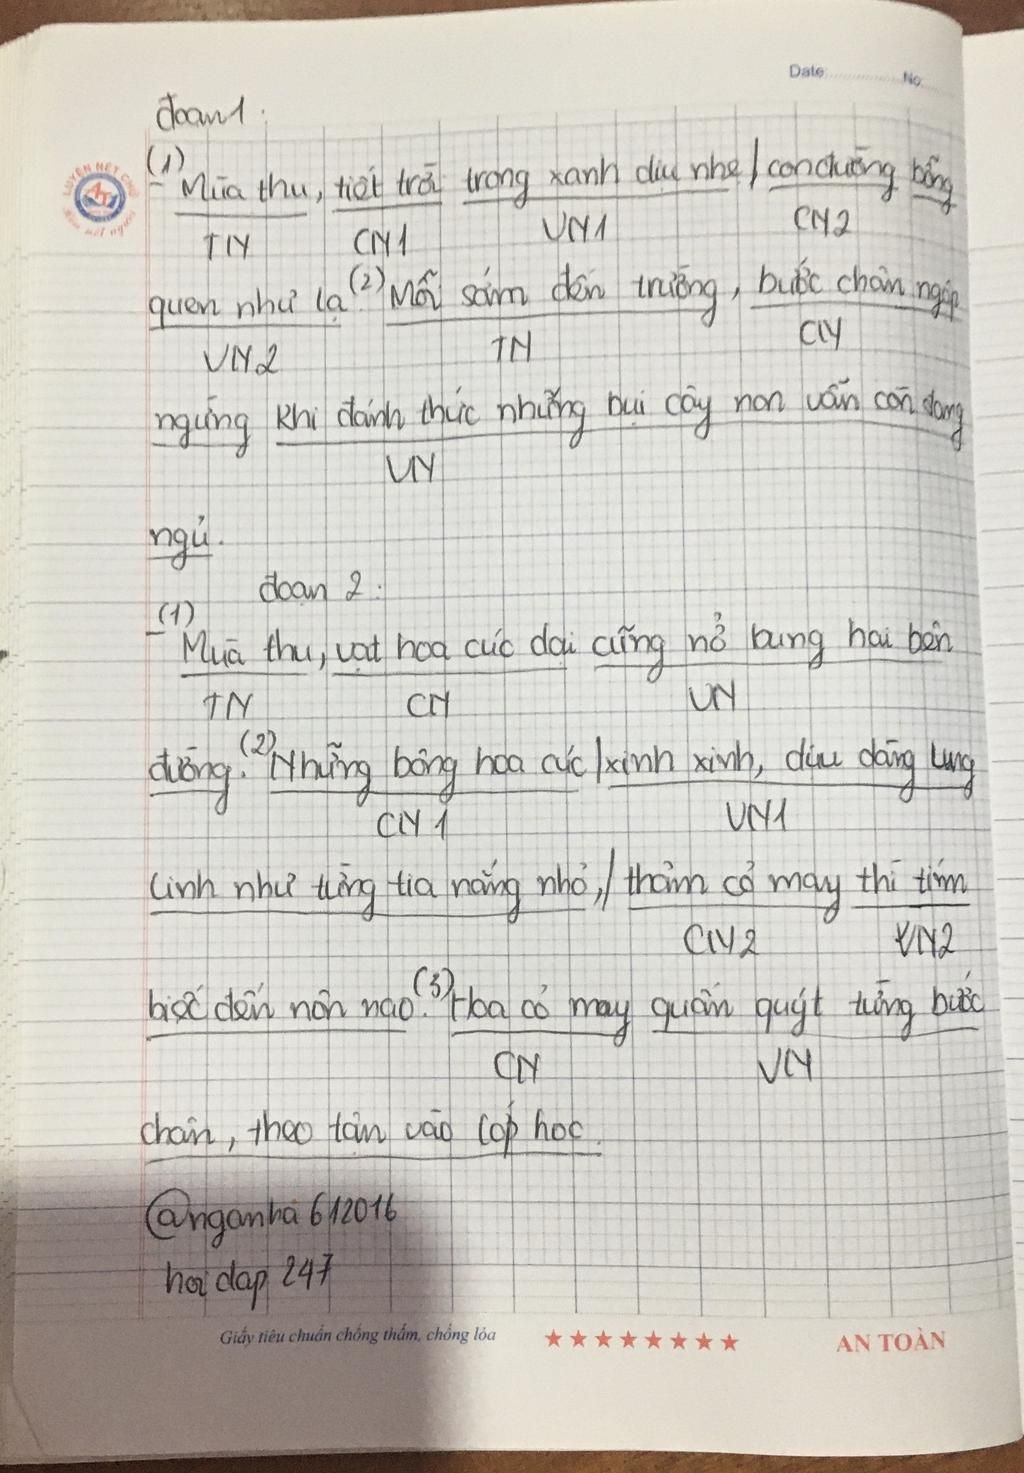 Date No
đoạn 1:
(1)
- Mùa thu, tiết trời trong xanh dịu nhẹ / con đường bỗng
TN CN1 VN1 CN2
quen như lạ. (2) Mỗi sớm đến trường, bước chân ngập
VN2 TN CN
ngừng khi đánh thức những bụi cây non vẫn còn đang
VN
ngủ.
đoạn 2:
(1)
- Mùa thu, vạt hoa cúc dại cũng nở bung hai bên
TN CN VN
đường. (2) Những bông hoa cúc / xinh xinh, dịu dàng lung
CN1 VN1
linh như từng tia nắng nhỏ, / thảm cỏ may thì tím
CN2 VN2
biếc đến nôn nao. (3) Hoa cỏ may quấn quýt từng bước
CN VN
chân, theo tận vào lớp học.
@nganha612016
hoidap 247
Giấy tiêu chuẩn chống thấm, chống lóa ★★★★★★★★ AN TOÀN